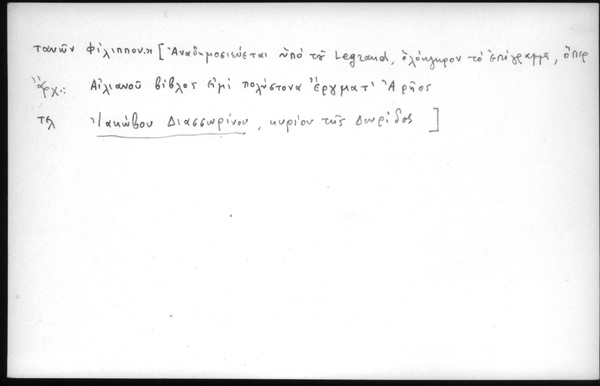 τανῶν Φίλιππον.» [Ἀναδημοσιεύεται ὑπό τοῦ Legrand, ὁλόκληρον τό ἐπίγραμμα, ὅπερ
ἄρχ.: Αἰλιανοῦ βίβλος εἰμί πολύστονα ἔργματ' Ἄρηος
τελ Ἰακώβου Διασσωρίνου, κυρίου τῆς Δωρίδος]